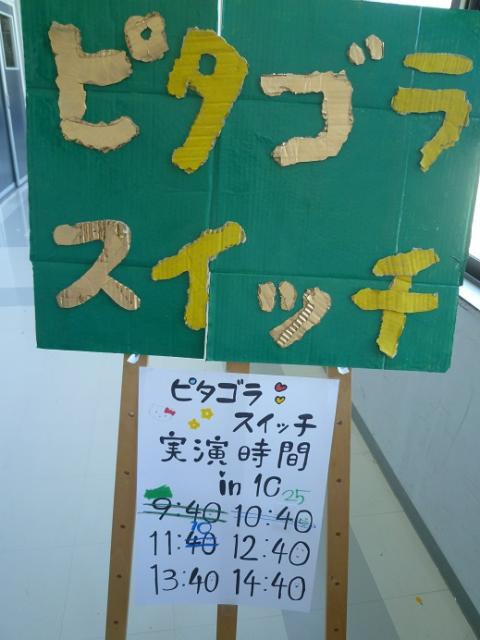 ピタゴラ
スイッチ
ピタゴラ
スイッチ
実演時間
in 1C
25
9:40 10:40
10
11:40 12:40
13:40 14:40